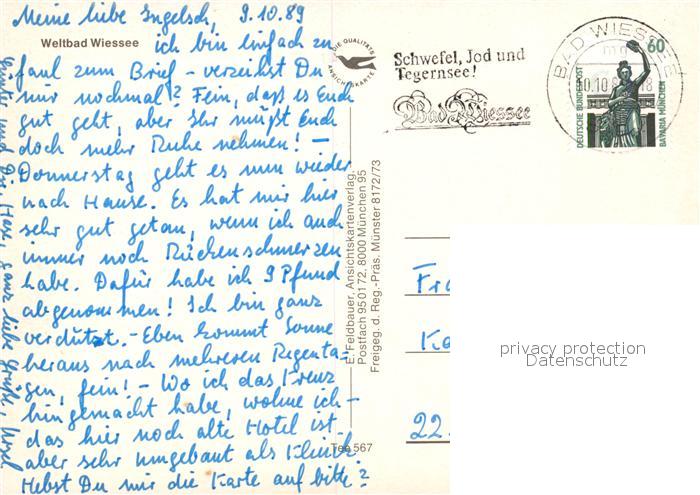 Meine liebe Ingelsch, 9.10.89
Weltbad Wiessee
ich bin einfach zu
faul zum Brief – verzeihst Du
mir nochmal? Fein, daß es Euch
gut geht, aber Ihr müßt Euch
doch mehr Ruhe nehmen! –
Donnerstag geht es nun wieder
nach Hause. Es hat mir hier
sehr gut getan, wenn ich auch
immer noch Rückenschmerzen
habe. Dafür habe ich 9 Pfund
abgenommen! Ich bin ganz
verdutzt. – Eben kommt Sonne
heraus nach mehreren Regenta-
gen, fein! – Wo ich das Kreuz
hingemacht habe, wohne ich –
das hier noch alte Hotel ist
aber sehr umgebaut als Klinik!
Hebst Du mir die Karte auf bitte?
und Dir, ganz liebe Grüße,
DIE QUALITÄTS
ANSICHTSKARTE
Schwefel, Jod und
Tegernsee!
Bad Wiessee
BAD WIESSEE
mg
10.10.8
18
60
DEUTSCHE BUNDESPOST
BAVARIA MÜNCHEN
E. Feldbauer, Ansichtskartenverlag,
Postfach 95 01 72, 8000 München 95
Freigeg. d. Reg.-Präs. Münster 8172/73
Teg 567
Fr
Ka
22.
privacy protection
Datenschutz